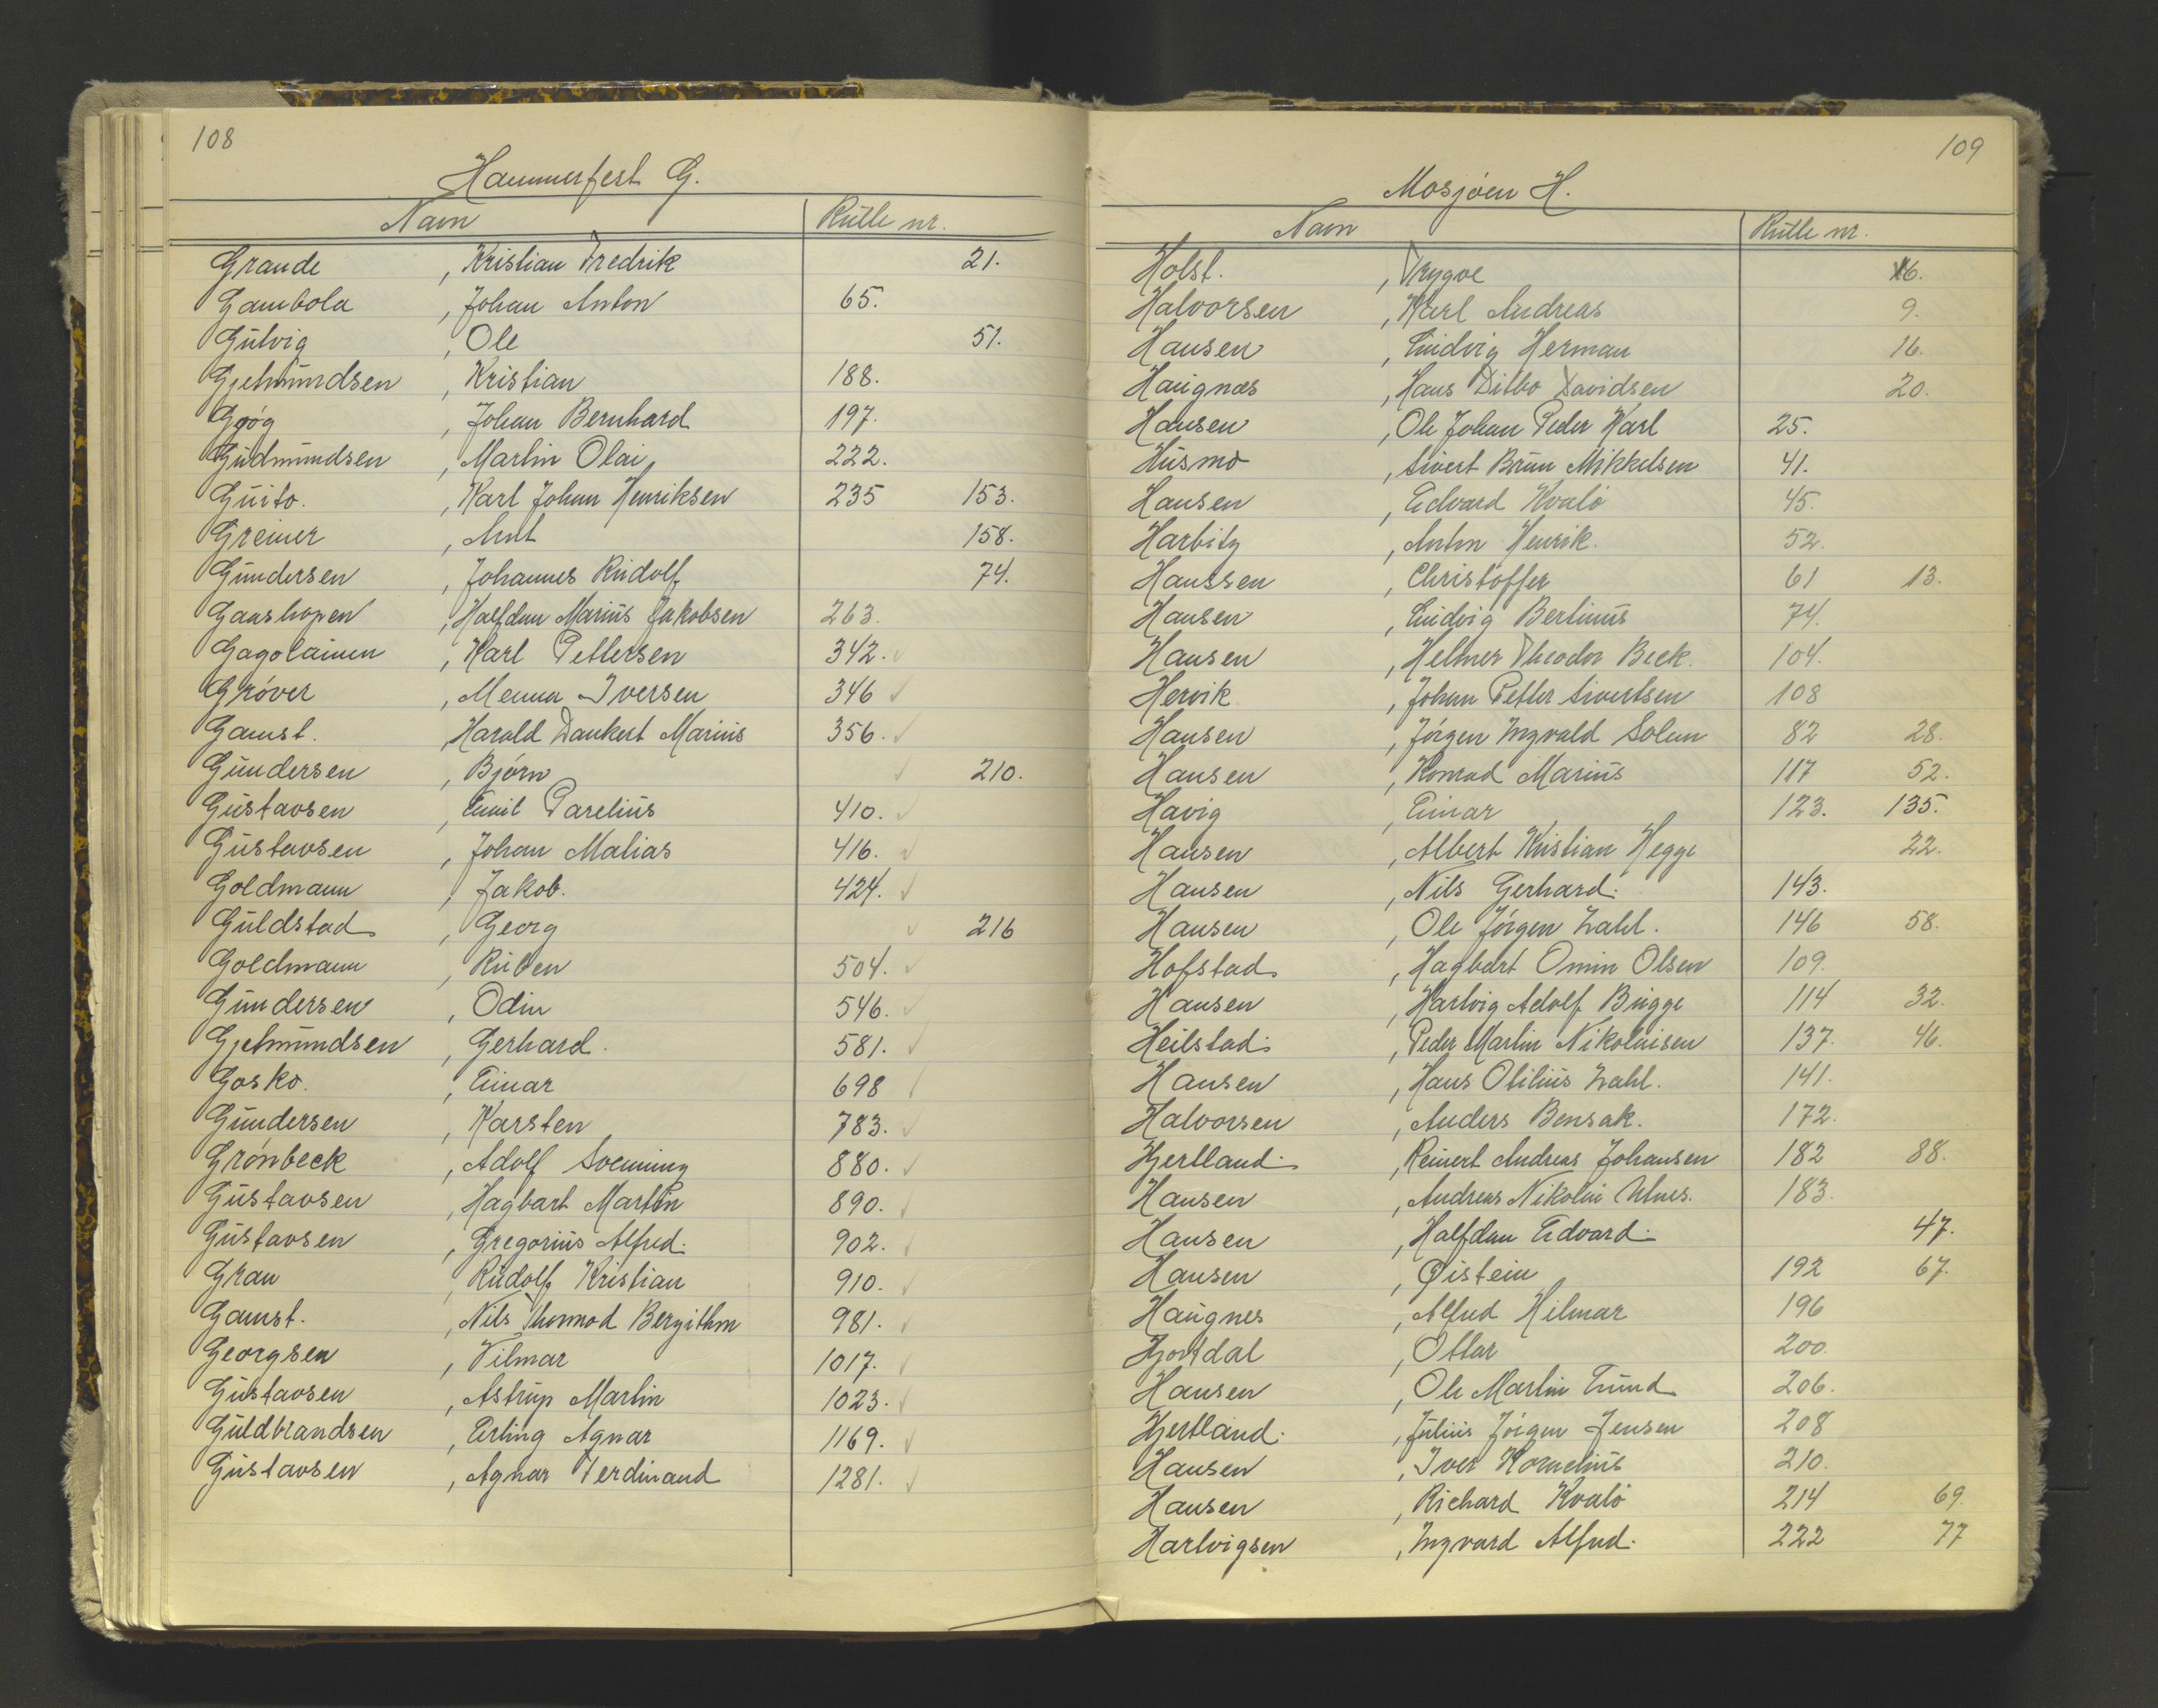 108
Hammerfest G.
Navn Rulle nr.
Grande , Kristian Fredrik 21.
Gambola , Johan Anton 65.
Gulvig , Ole 51.
Gjetmundsen , Kristian 188.
Gjøg , Johan Bernhard 197.
Gudmundsen , Martin Olai 222.
Guito. , Karl Johan Henriksen 235 153.
Greiner , Arnt 158.
Gundersen , Johannes Rudolf 74.
Gaashopen , Halfdan Marius Jakobsen 263.
Gagolainen , Karl Pettersen 342. ✓
Grøver , Menna Iversen 346 ✓
Gamst. , Harald Dankert Marius 356. ✓
Gundersen , Bjørn ✓ 210.
Gustavsen , Emil Parelius 410. ✓
Gustavsen , Johan Malias 416. ✓
Goldmann , Jakob. 424. ✓
Guldstad , Georg ✓ 216
Goldmann , Ruben 504. ✓
Gundersen , Odin 546. ✓
Gjetmundsen , Gerhard. 581. ✓
Gosko. , Einar 698 ✓
Gundersen , Karsten 783. ✓
Grønbeck , Adolf Svenning 880. ✓
Gustavsen , Hagbart Martin 890. ✓
Gustavsen , Gregorius Alfred. 902. ✓
Grau , Rudolf Kristian 910. ✓
Gamst. , Nils Thormod Bergithon 981. ✓
Georgsen , Vilmar 1017. ✓
Gustavsen , Astrup Martin 1023. ✓
Guldbrandsen , Erling Agnar 1169. ✓
Gustavsen , Agnar Ferdinand 1281. ✓
109
Mosjøen H.
Navn Rulle nr.
Holst. , Trygve 6.
Halvorsen , Karl Andreas 9.
Hansen , Ludvig Herman 16.
Haugnæs , Hans Ditbo Davidsen 20.
Hansen , Ole Johan Peder Karl 25.
Husmo , Sivert Brun Mikkelsen 41.
Hansen , Edvard Kvalø 45.
Harbitz , Anton Henrik. 52.
Hanssen , Christoffer 61 13.
Hansen , Ludvig Bertinus 74.
Hansen , Helmer Theodor Beck. 104.
Hervik , Johan Petter Sivertsen 108
Hansen , Jørgen Ingvald Solem 82 28.
Hansen , Konrad Marius 117 52.
Havig , Einar 123. 135.
Hansen , Albert Kristian Hegge 22.
Hansen , Nils Gerhard. 143.
Hansen , Ole Jørgen Zahl. 146 58.
Hofstad , Hagbart Omin Olsen 109.
Hansen , Hartvig Adolf Bugge 114 32.
Heilstad , Peder Martin Nikolaisen 137. 46.
Hansen , Hans Otilius Zahl. 141.
Halvorsen , Anders Bensak. 172.
Hjertland , Reinert Andreas Johansen 182 88.
Hansen , Andreas Nikolai Ulnes. 183.
Hansen , Halfdan Edvard. 47.
Hansen , Øistein 192 67.
Haugnes , Alfred Hilmar 196
Hjortdal , Ottar 200.
Hansen , Ole Martin Lund 206.
Hjertland. , Julius Jørgen Jensen 208
Hansen , Iver Kornelius 210.
Hansen , Richard Kvalø 214 69.
Hartvigsen , Ingvard Alfred. 222 77